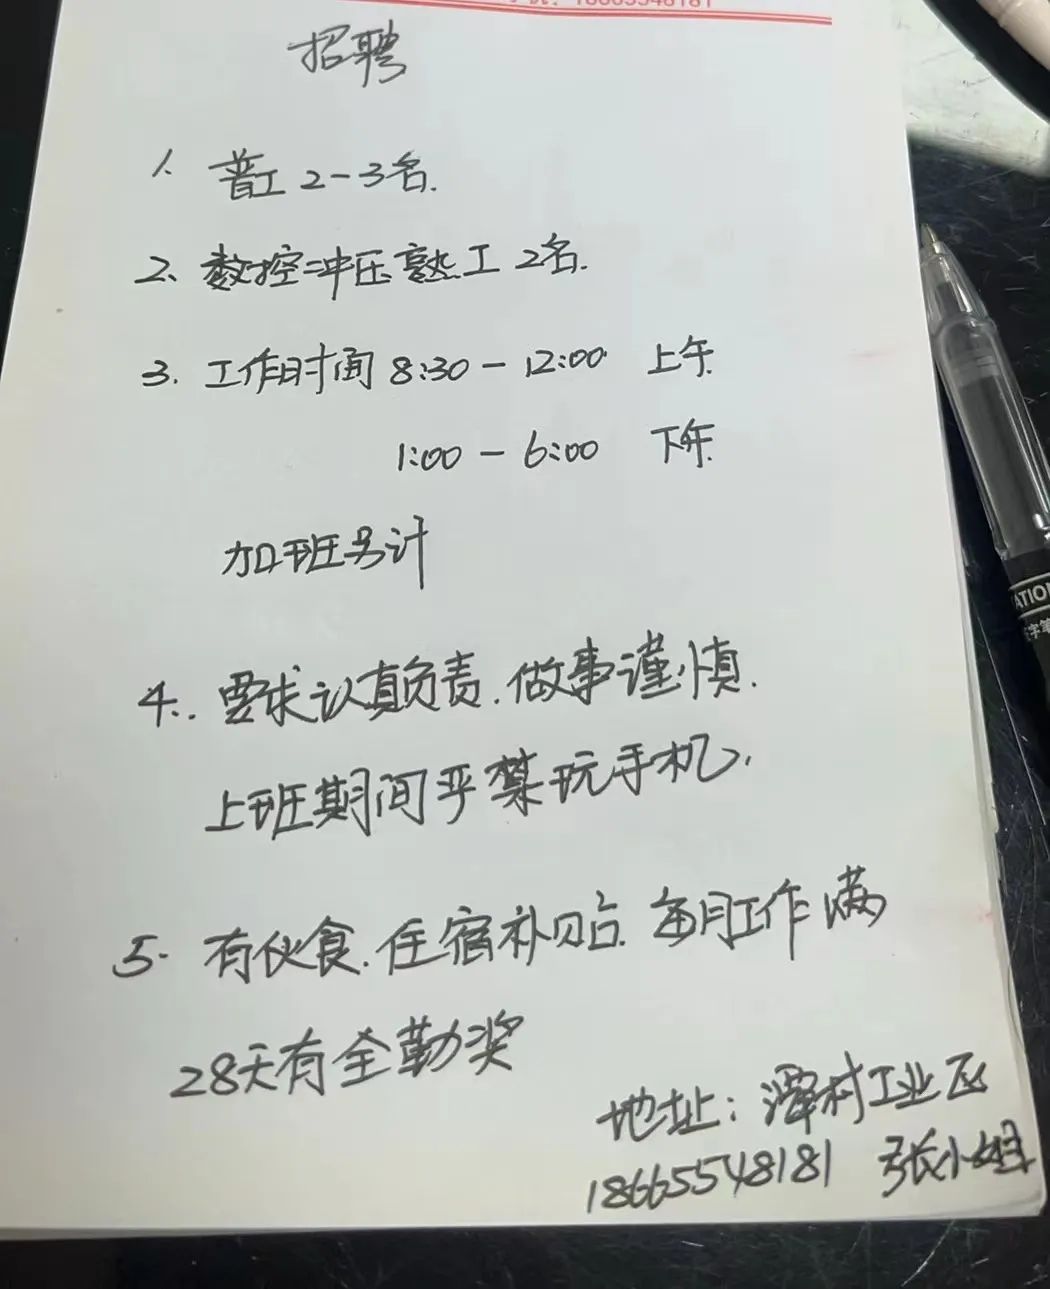 招聘
1. 普工 2-3名.
2、数控冲压熟工 2名.
3. 工作时间 8:30 - 12:00 上午
1:00 - 6:00 下午
加班另计
4. 要求认真负责.做事谨慎.
上班期间严禁玩手机.
5. 有伙食.住宿补贴.每月工作满
28天有全勤奖
地址：潭村工业区
18665548181 张小姐
ATION
字笔